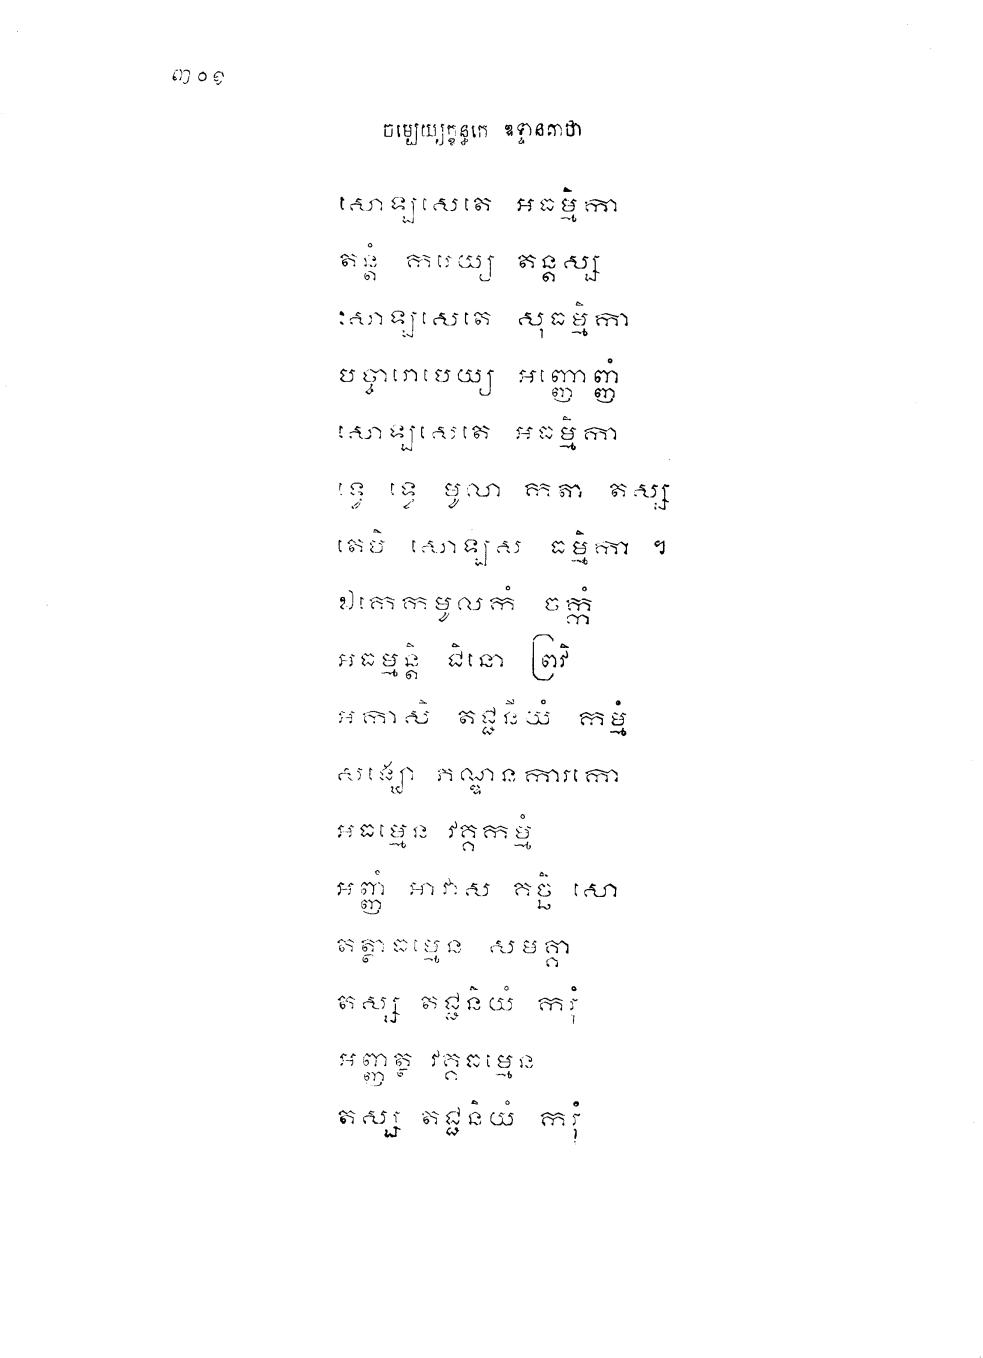 ៣០១
ចម្បេយ្យក្ខន្ធកេ ឧទ្ទានគាថា
សោឡសេតេ អធម្មិកា
តន្តំ ការេយ្យ តន្តស្ស
សោឡសេតេ សុធម្មិកា
បច្ចារោបេយ្យ អញ្ញោញ្ញំ
សោឡសេតេ អធម្មិកា
ទ្វេ ទ្វេ មូលា កតា តស្ស
តេបិ សោឡស ធម្មិកា ។
ឯកេកមូលកំ ចក្កំ
អធម្មន្តិ ជិនោ ព្រវិ
អកាសិ តជ្ជនីយំ កម្មំ
សង្ឃោ ភណ្ឌនការកោ
អធម្មេន វគ្គកម្មំ
អញ្ញំ អាវាស គច្ឆិ សោ
តត្ថាធម្មេន សមគ្គា
តស្ស តជ្ជនិយំ ករុំ
អញ្ញត្ថ វគ្គធម្មេន
តស្ស តជ្ជនិយំ ករុំ